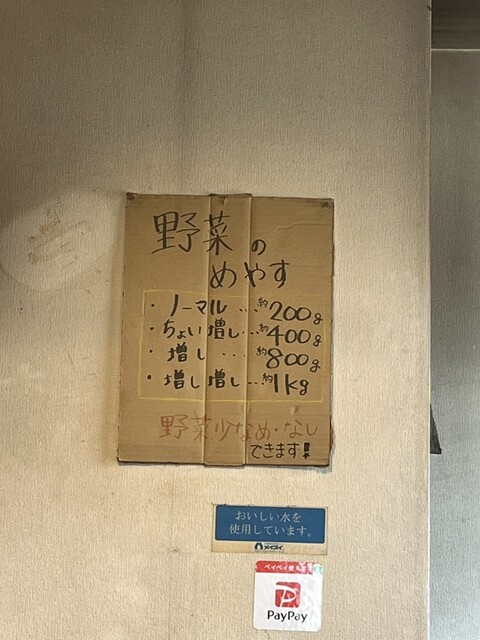 野菜の
めやす
・ノーマル...約200g
・ちょい増し...約400g
・増し....約800g
・増し増し...約1kg
野菜少なめ・なし
できます!
おいしい水を
使用しています。
PayPay